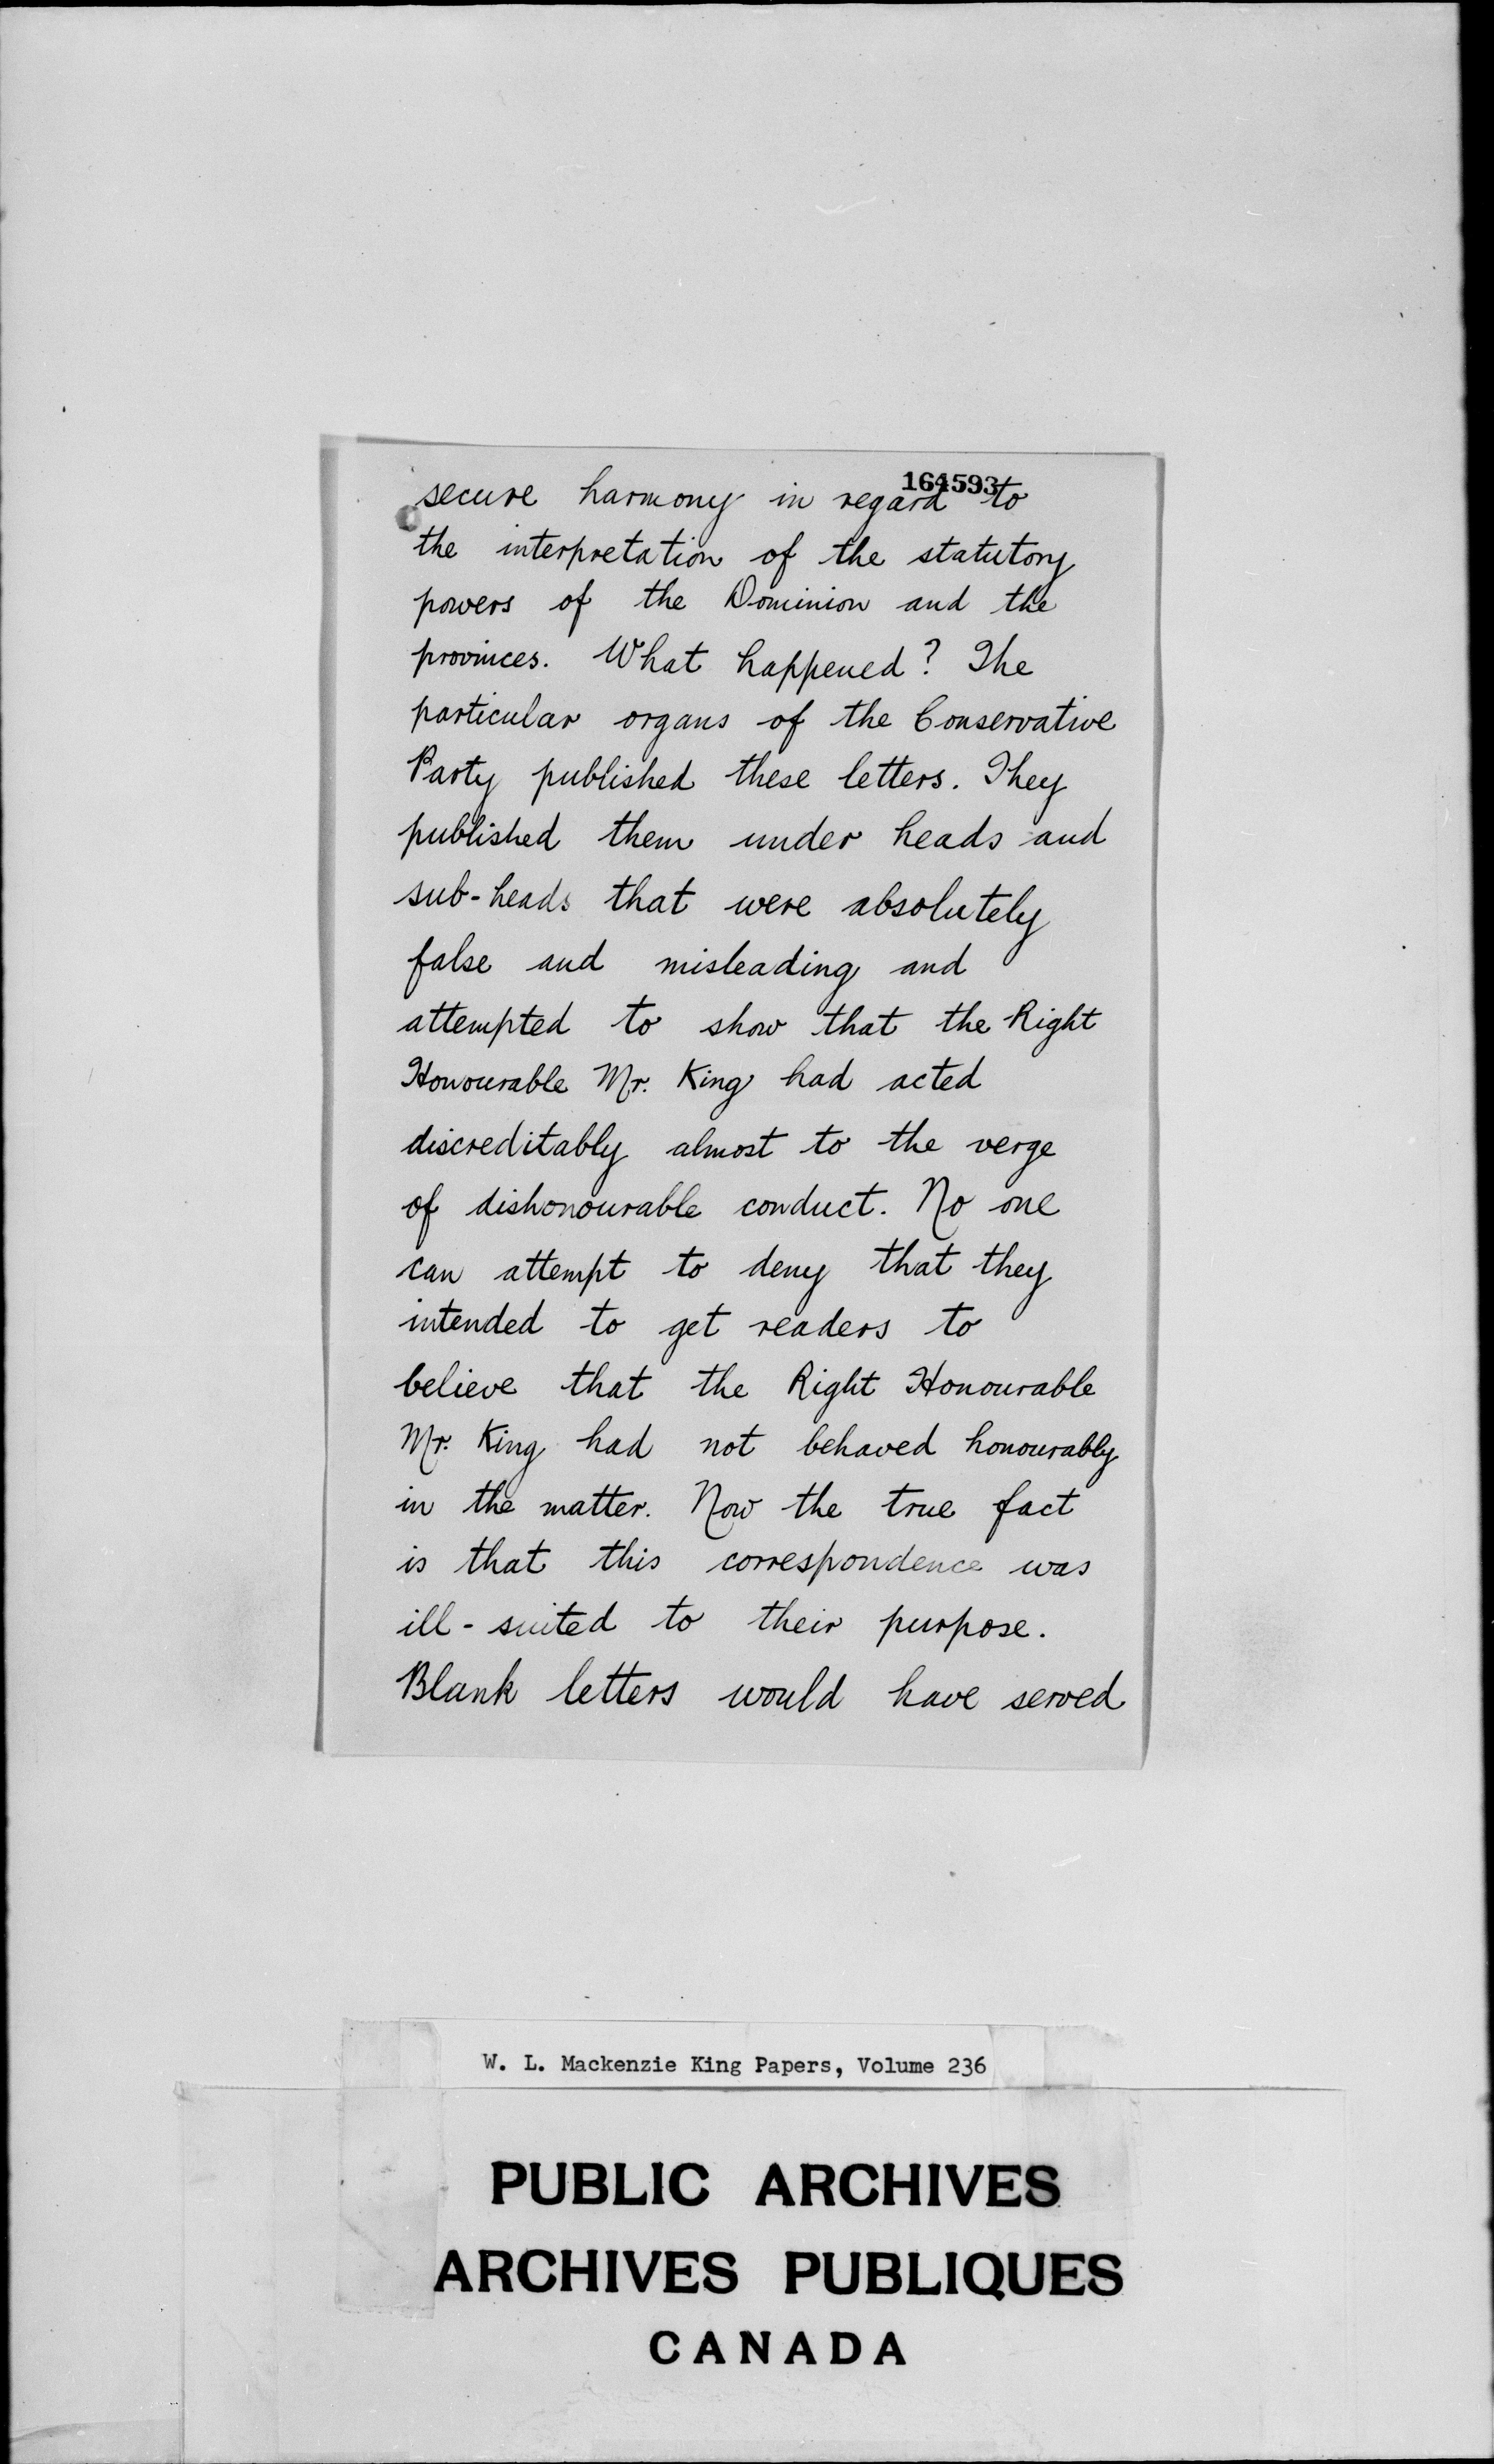 164593
secure harmony in regard to
the interpretation of the statutory
powers of the Dominion and the
provinces. What happened? The
particular organs of the Conservative
Party published these letters. They
published them under heads and
sub-heads that were absolutely
false and misleading and
attempted to show that the Right
Honourable Mr. King had acted
discreditably almost to the verge
of dishonourable conduct. No one
can attempt to deny that they
intended to get readers to
believe that the Right Honourable
Mr. King had not behaved honourably
in the matter. Now the true fact
is that this correspondence was
ill-suited to their purpose.
Blank letters would have served
W. L. Mackenzie King Papers, Volume 236
PUBLIC ARCHIVES
ARCHIVES PUBLIQUES
CANADA